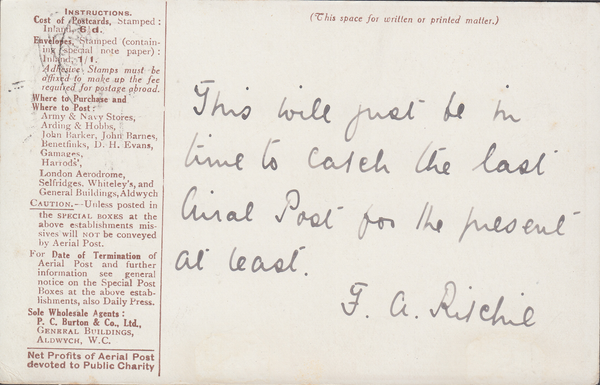 INSTRUCTIONS.
Cost of Postcards, Stamped:
Inland, 6½d.
Envelopes, Stamped (contain-
ing special note paper):
Inland, 1/1.
Adhesive Stamps must be
affixed to make up the fee
required for postage abroad.
Where to Purchase and
Where to Post:
Army & Navy Stores,
Arding & Hobbs,
John Barker, John Barnes,
Benetfinks, D. H. Evans,
Gamages,
Harrods',
London Aerodrome,
Selfridges, Whiteley's, and
General Buildings, Aldwych
CAUTION.—Unless posted in
the SPECIAL BOXES at the
above establishments mis-
sives will NOT be conveyed
by Aerial Post.
For Date of Termination of
Aerial Post and further
information see general
notice on the Special Post
Boxes at the above estab-
lishments, also Daily Press.
Sole Wholesale Agents:
P. C. Burton & Co., Ltd.,
GENERAL BUILDINGS,
ALDWYCH, W.C.
Net Profits of Aerial Post
devoted to Public Charity
(This space for written or printed matter.)
This will just be in
time to catch the last
Airal Post for the present
at least.
F. A. Ritchie